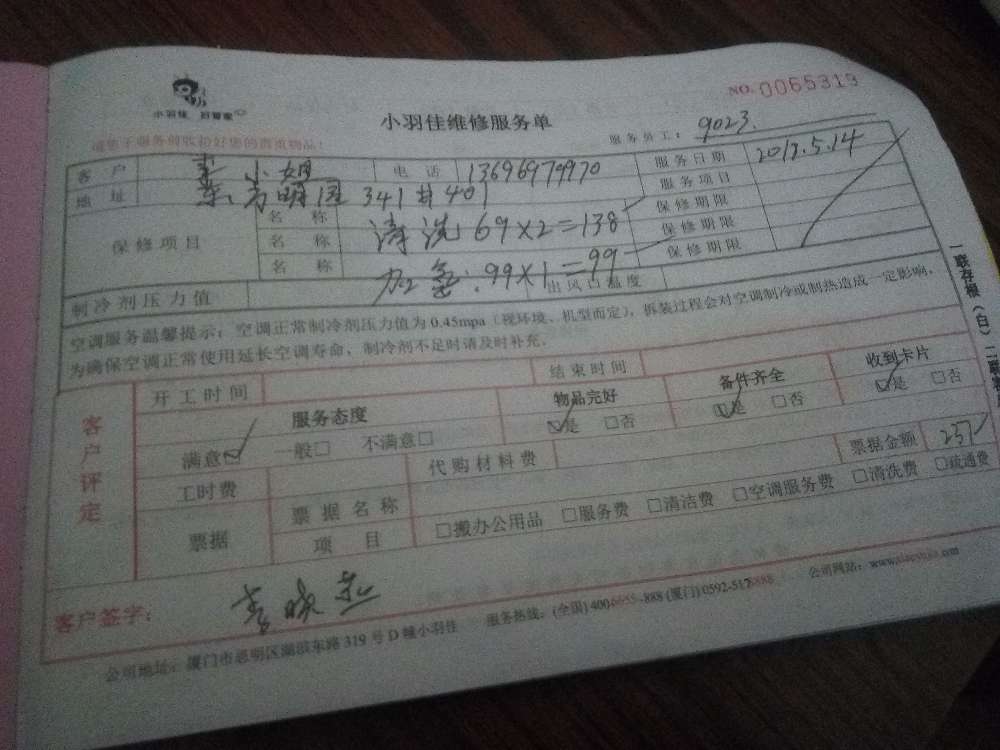 NO. 0065319
小羽佳 百管家
小羽佳维修服务单
服务员工: 9023.
请您于服务前收拾好您的贵重物品:
客户 小姐 电话 13696979970 服务日期 2017.5.14
地址 明园 341#401 服务项目
保修项目 名称 清洗 69×2=138 保修期限
名称 加氢: 99×1=99 保修期限
名称 保修期限
制冷剂压力值 出风口温度
空调服务温馨提示: 空调正常制冷剂压力值为0.45mpa(视环境、机型而定), 拆装过程会对空调制冷或制热造成一定影响,
为确保空调正常使用延长空调寿命, 制冷剂不足时请及时补充。
客户评定 开工时间 结束时间
服务态度 物品完好 备件齐全 收到卡片
满意☑ 一般□ 不满意□ ☑是 □否 ☑是 □否 ☑是 □否
工时费 代购材料费 票据金额 237
票据 票据名称
项目 □搬办公用品 □服务费 □清洁费 □空调服务费 □清洗费 □疏通费
客户签字:
公司地址: 厦门市思明区湖滨东路319号D幢小羽佳 服务热线: (全国)400-6655-888 (厦门)0592-517 公司网站: www.
一联存根(白)二联